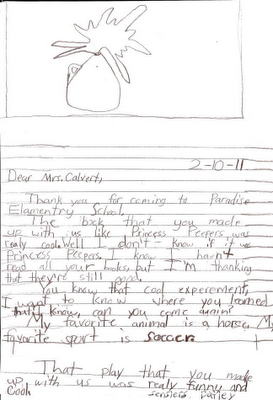 2-10-11
Dear Mrs. Calvert,
Thank you for coming to Paradise
Elamentry School.
The book that you made
up with us like Princess Peepers was
really cool. Well I don't know if it was
Princess Peepers. I know I havn't
read all your books, but I'm thinking
that they're still good.
You know that cool experement,
I want to know where you learned
that. I know, can you come again?
My favorite animal is a horse. My
favorite sport is Soccer.
That play that you made
up with us was realy funny and
Cool